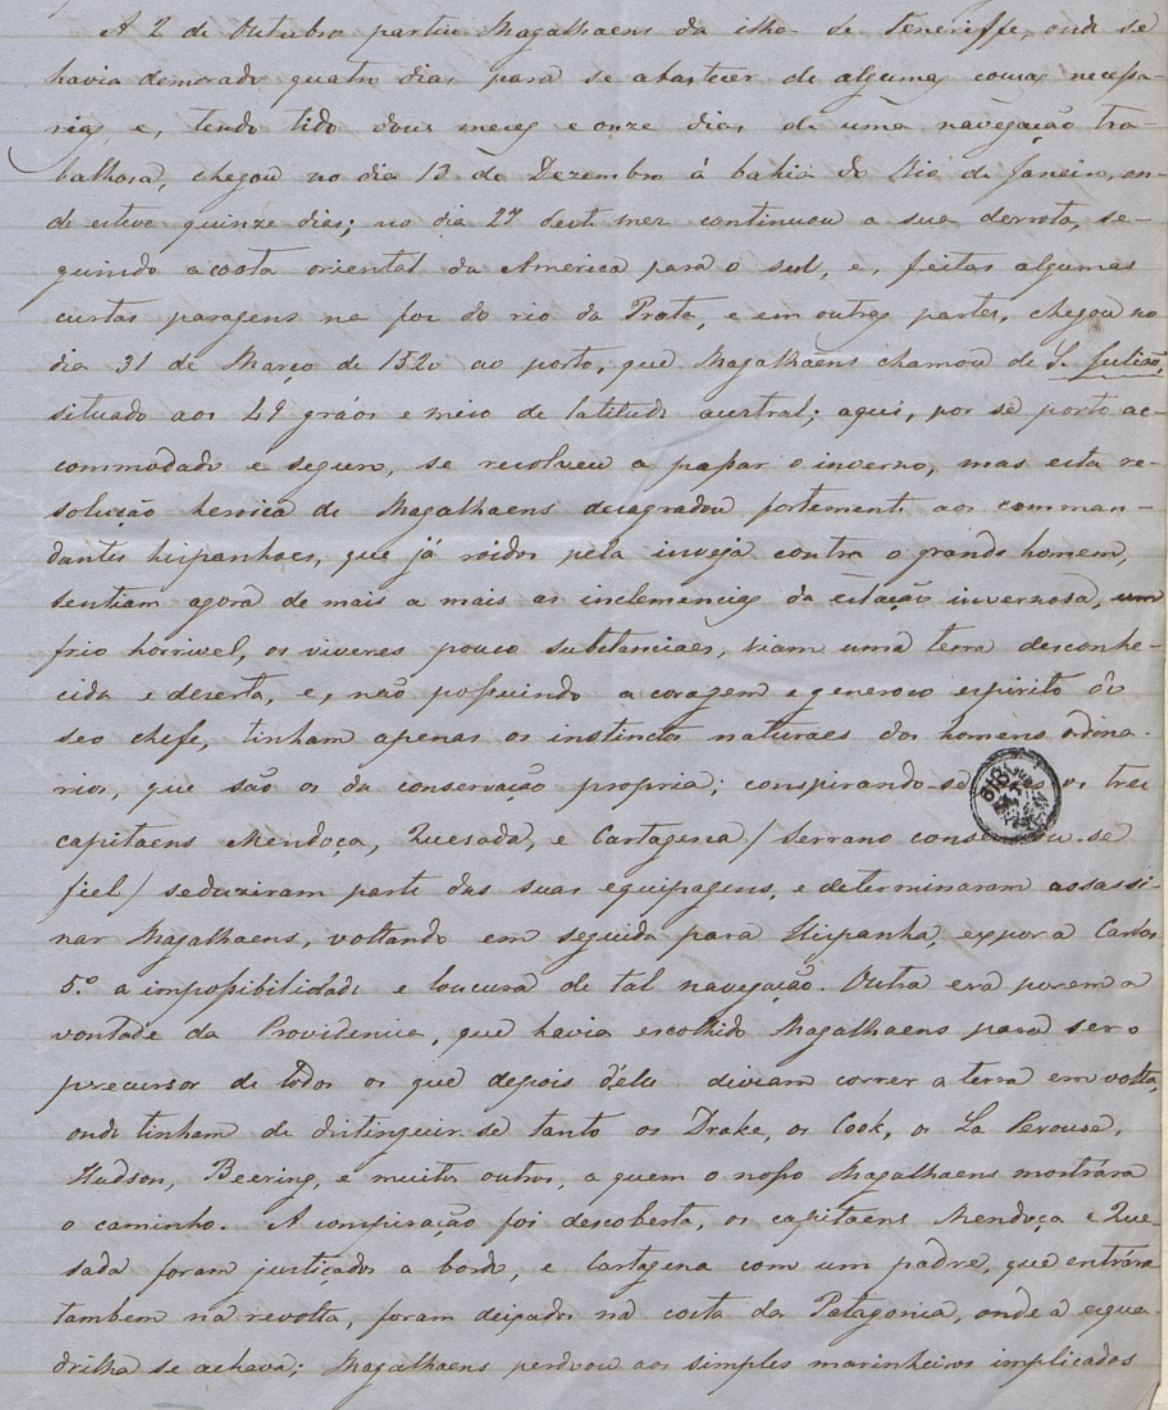 A 2 de Outubro partiu Magalhaens da ilha de Teneriffe, onde se
havia demorado quatro dias para se abastecer de algumas cousas necessa-
rias e, tendo tido dous mezes e onze dias de uma navegação tra-
balhosa, chegou no dia 13 de Dezembro á bahia do Rio de Janeiro, on-
de esteve quinze dias; no dia 27 deste mez continuou a sua derrota, se-
guindo a costa oriental da America para o sul, e, feitas algumas
curtas paragens na foz do rio da Prata, e em outras partes, chegou no
dia 31 de Março de 1520 ao porto, que Magalhaens chamou de S. Julião,
situado aos 49 gráos e meio de latitude austral; aqui, por ser porto ac-
commodado e seguro, se resolveu a passar o inverno, mas esta re-
solução heroica de Magalhaens desagradou fortemente aos comman-
dantes hispanhoes, que já roidos pela inveja contra o grande homem,
sentiam agora de mais a mais as inclemencias da estação invernosa, um
frio horrivel, os viveres pouco substanciaes, viam uma terra desconhe-
cida e deserta, e, não possuindo a coragem e generoso espirito do
seo chefe, tinham apenas os instinctos naturaes dos homens ordina-
rios, que são os da conservação propria; conspirando-se os tres
capitaens Mendoça, Quesada, e Cartagena / Serrano conservou-se
fiel / seduziram parte das suas equipagens, e determinaram assassi-
nar Magalhaens, voltando em seguida para Hispanha, expor a Carlos
5.º a impossibilidade e loucura de tal navegação. Outra era porem a
vontade da Providencia, que havia escolhido Magalhaens para ser o
precursor de todos os que depois d'elle deviam correr a terra em volta,
onde tinham de distinguir-se tanto os Drake, os Cook, os La Perouse,
Hudson, Beering, e muitos outros, a quem o nosso Magalhaens mostrára
o caminho. A conspiração foi descoberta, os capitaens Mendoça e Que-
sada foram justiçados a bordo, e Cartagena com um padre, que entrára
tambem na revolta, foram deixados na costa da Patagonia, onde a esqua-
drilha se achava; Magalhaens perdoou aos simples marinheiros implicados